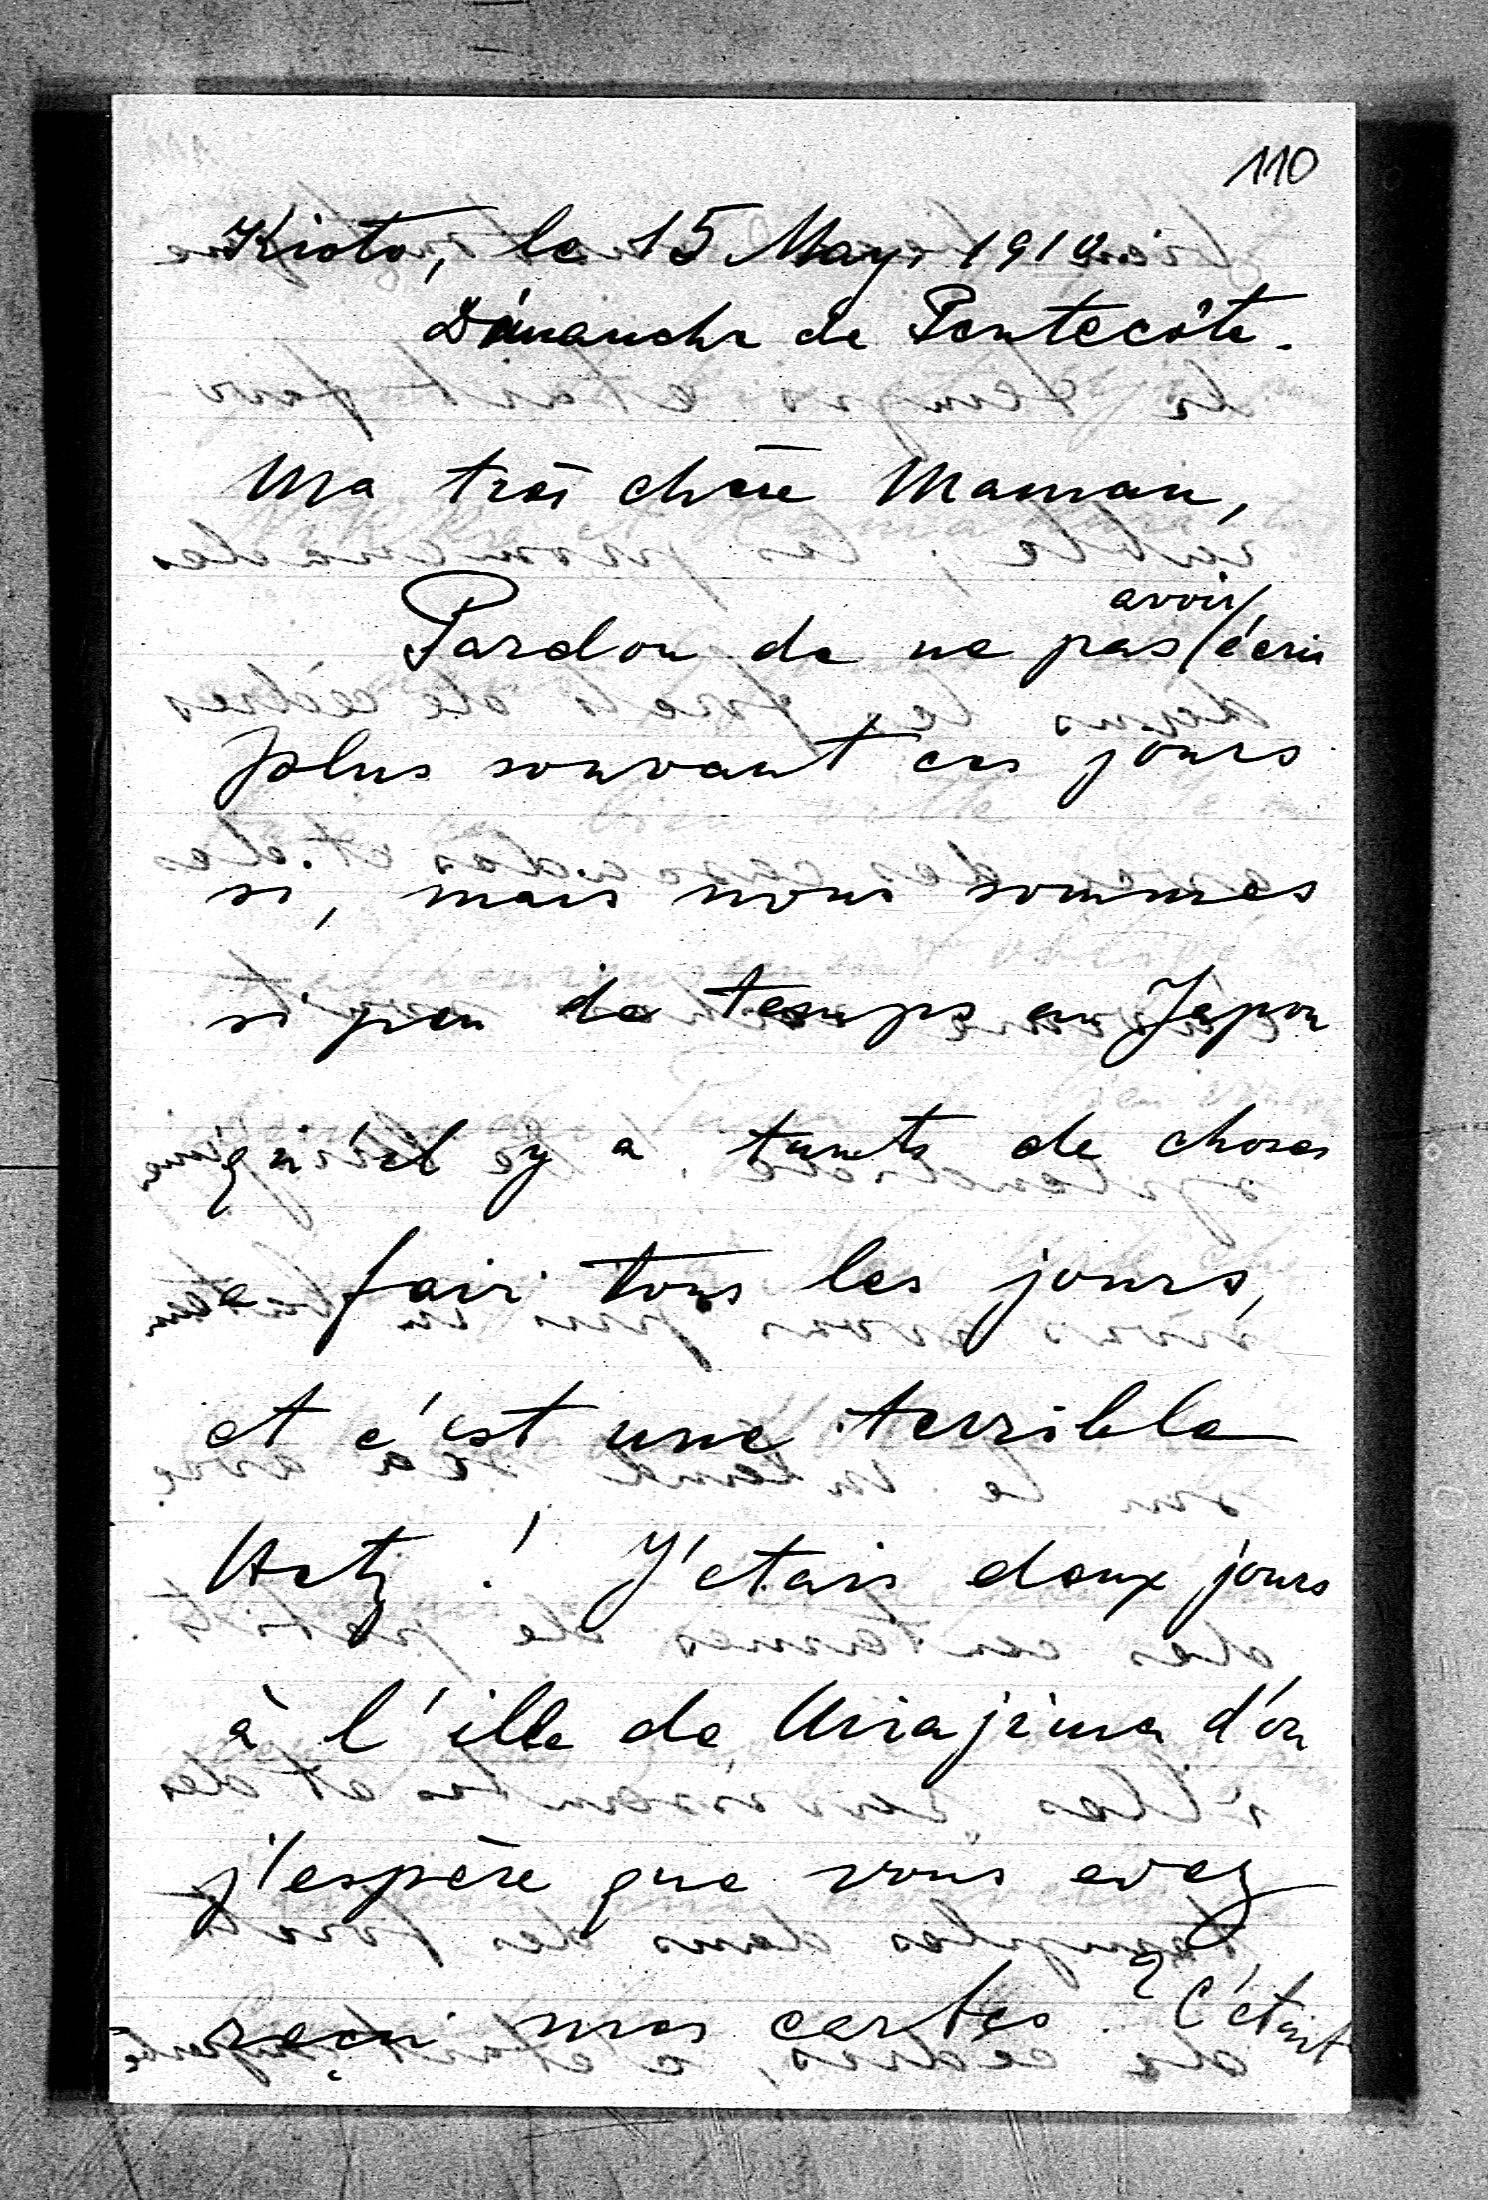 110
Kioto, le 15 May, 1910.
Dimanche de Pentecôte.
Ma très chère Maman,
avoir
Pardon de ne pas / écrir
plus souvant ces jours
si, mais nous sommes
si peu de temps au Japon
qu'il y a tants de choses
a fair tous les jours,
et c'est une terrible
Hetz! J'étais deux jours
à l'ille de Miajima d'ou
j'espère que vous avez
reçu mes cartes? C'était